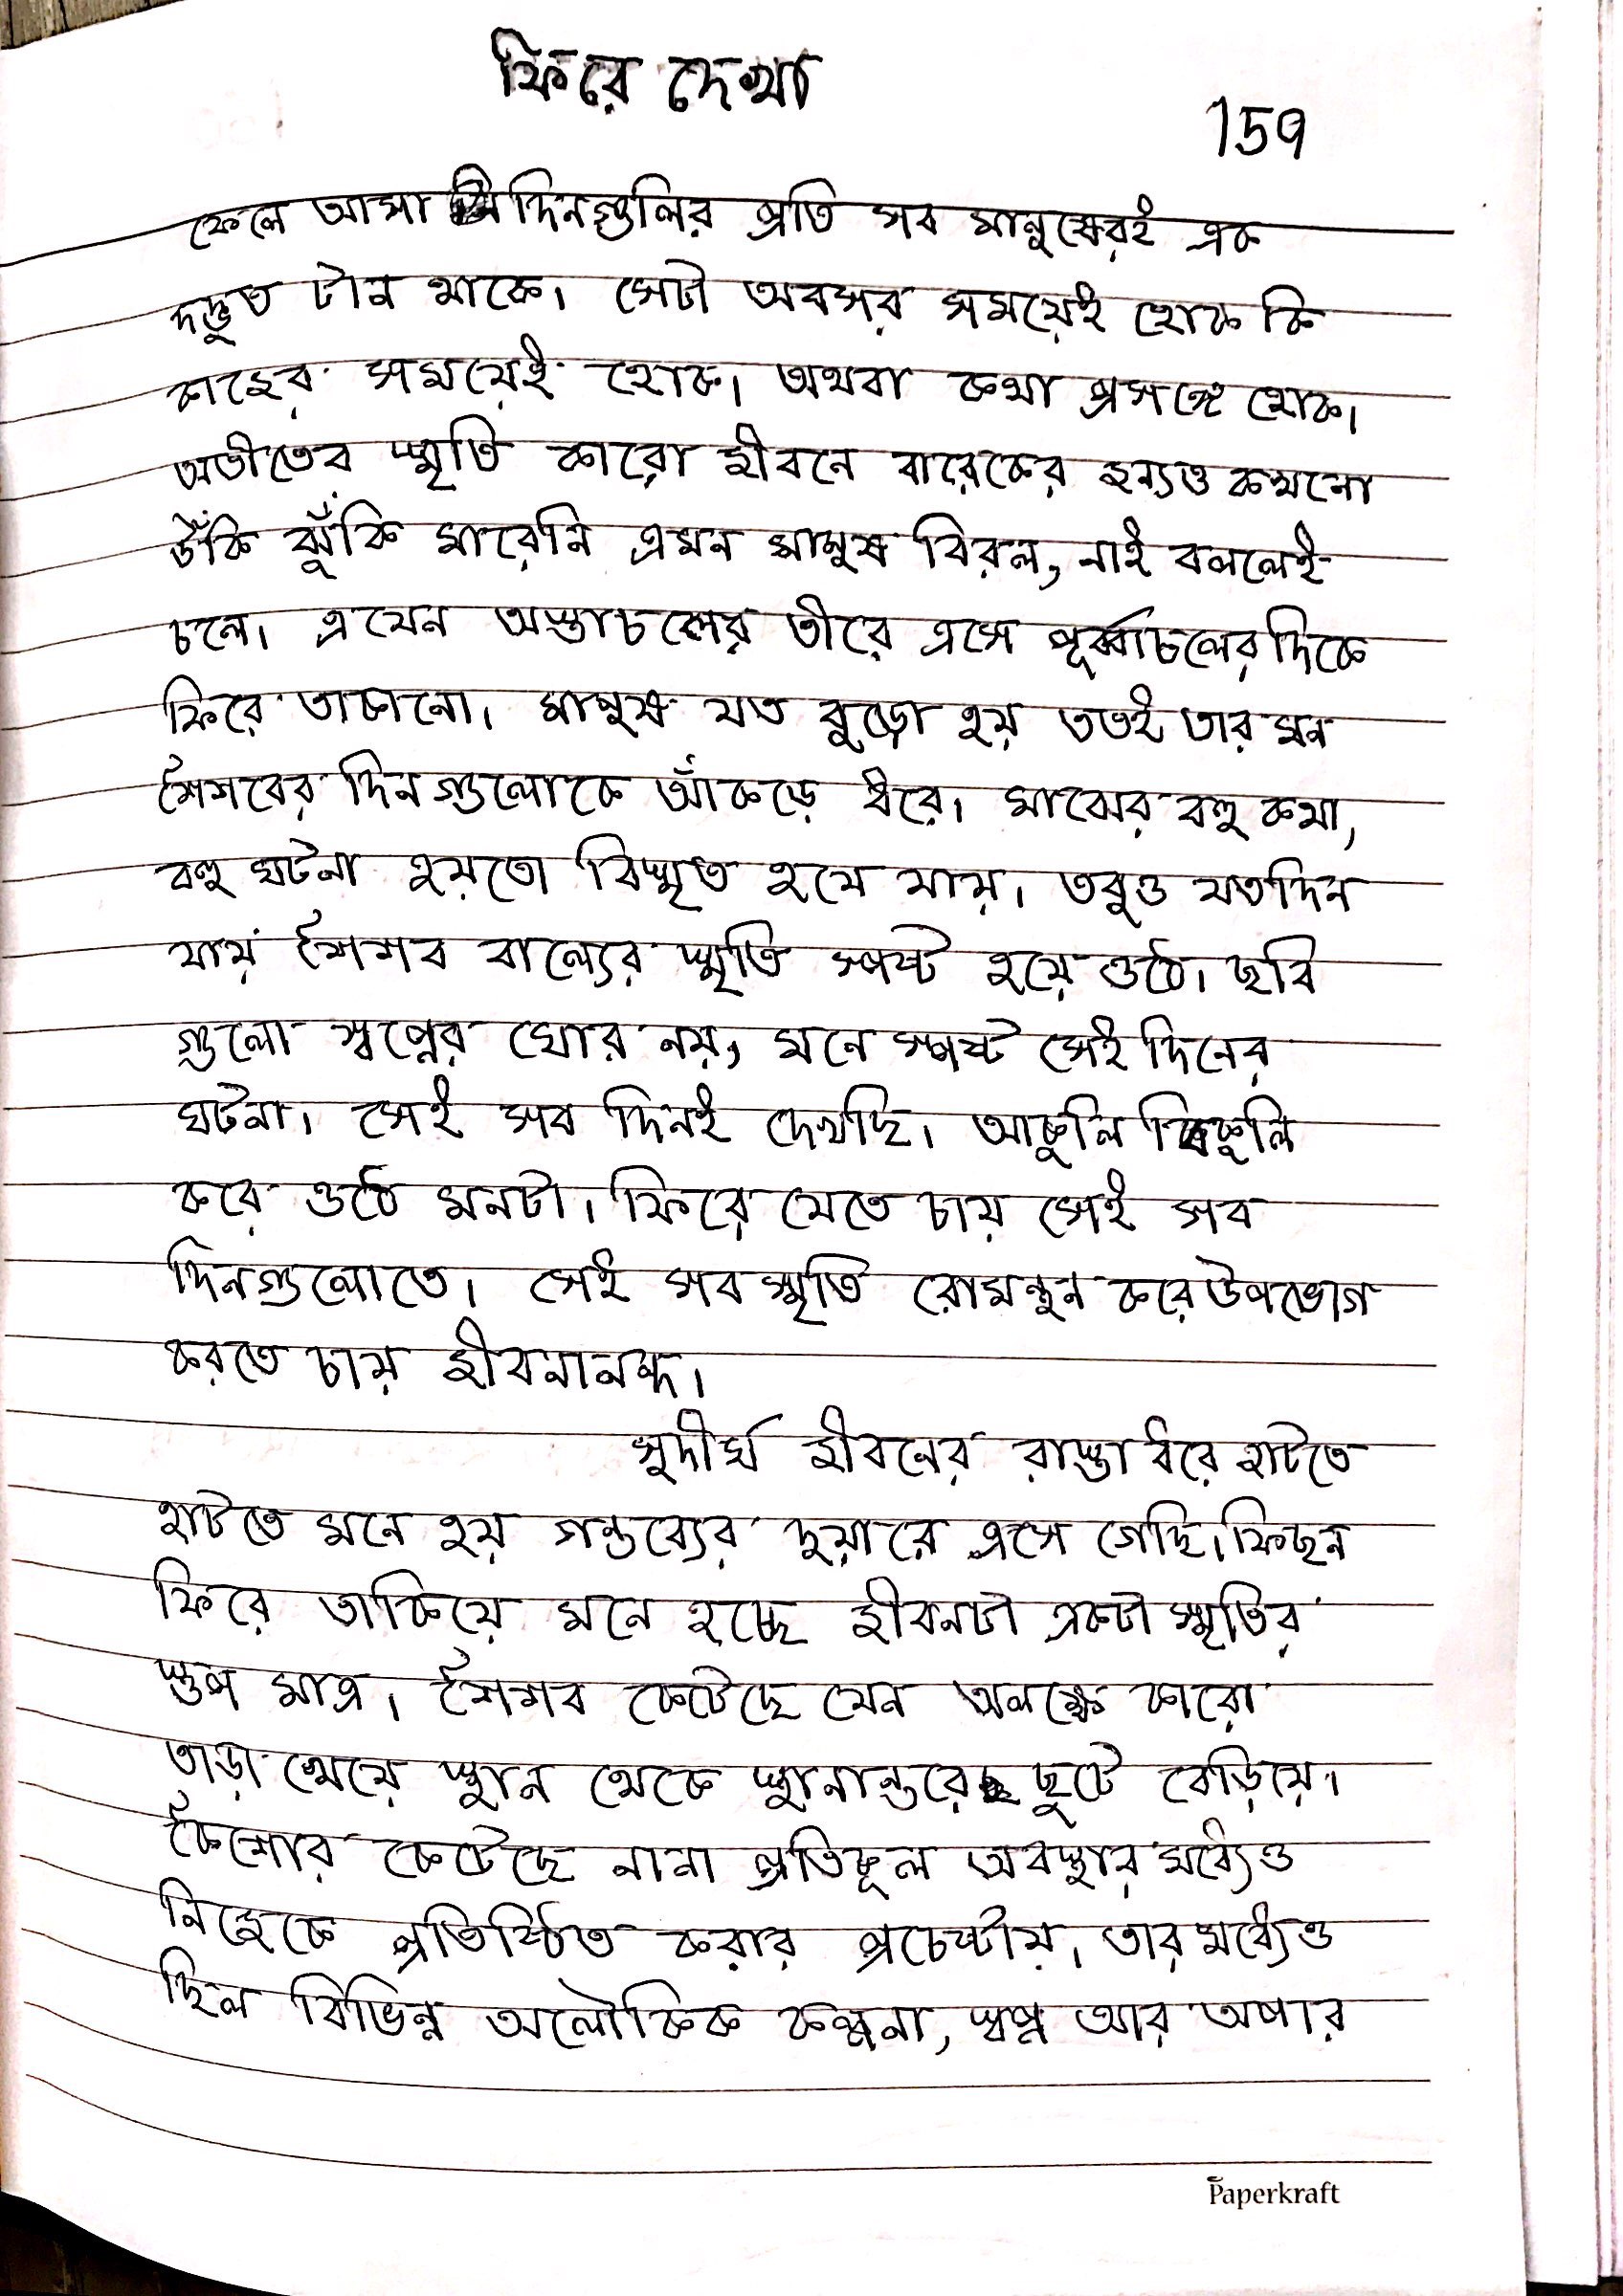 ফিরে দেখা
159
ফেলে আসা দিনগুলির প্রতি সব মানুষেরই এক
অদ্ভুত টান থাকে। সেটা অবসর সময়েই হোক কি
কাজের সময়েই হোক। অথবা কথা প্রসঙ্গে হোক।
অতীতের স্মৃতি কারো জীবনে বারেকের জন্যও কখনো
উঁকি ঝুঁকি মারেনি এমন মানুষ বিরল, নাই বললেই
চলে। এযেন অস্তাচলের তীরে এসে পূর্ব্বাচলের দিকে
ফিরে তাকানো। মানুষ যত বুড়ো হয় ততই তার মন
শৈশবের দিনগুলোকে আঁকড়ে ধরে। মাঝের বহু কথা,
বহু ঘটনা হয়তো বিস্মৃত হয়ে যায়। তবুও যতদিন
যায় শৈশব বাল্যের স্মৃতি স্পষ্ট হয়ে ওঠে। ছবি
গুলো স্বপ্নের ঘোর নয়, মনে স্পষ্ট সেই দিনের
ঘটনা। সেই সব দিনই দেখছি। আকুলি বিকুলি
করে ওঠে মনটা। ফিরে যেতে চায় সেই সব
দিনগুলোতে। সেই সব স্মৃতি রোমন্থন করে উপভোগ
করতে চায় জীবনানন্দ।
সুদীর্ঘ জীবনের রাস্তা ধরে হাটতে
হাটতে মনে হয় গন্তব্যের দুয়ারে এসে গেছি। পিছন
ফিরে তাকিয়ে মনে হচ্ছে জীবনটা একটা স্মৃতির
স্তুপ মাত্র। শৈশব কেটেছে যেন অলক্ষে কারো
তাড়া খেয়ে স্থান থেকে স্থানান্তরে ছুটে বেড়িয়ে।
কৈশোর কেটেছে নানা প্রতিকূল অবস্থার মধ্যেও
নিজেকে প্রতিষ্ঠিত করার প্রচেষ্টায়। তার মধ্যেও
ছিল বিভিন্ন অলৌকিক কল্পনা, স্বপ্ন আর অপার
Paperkraft